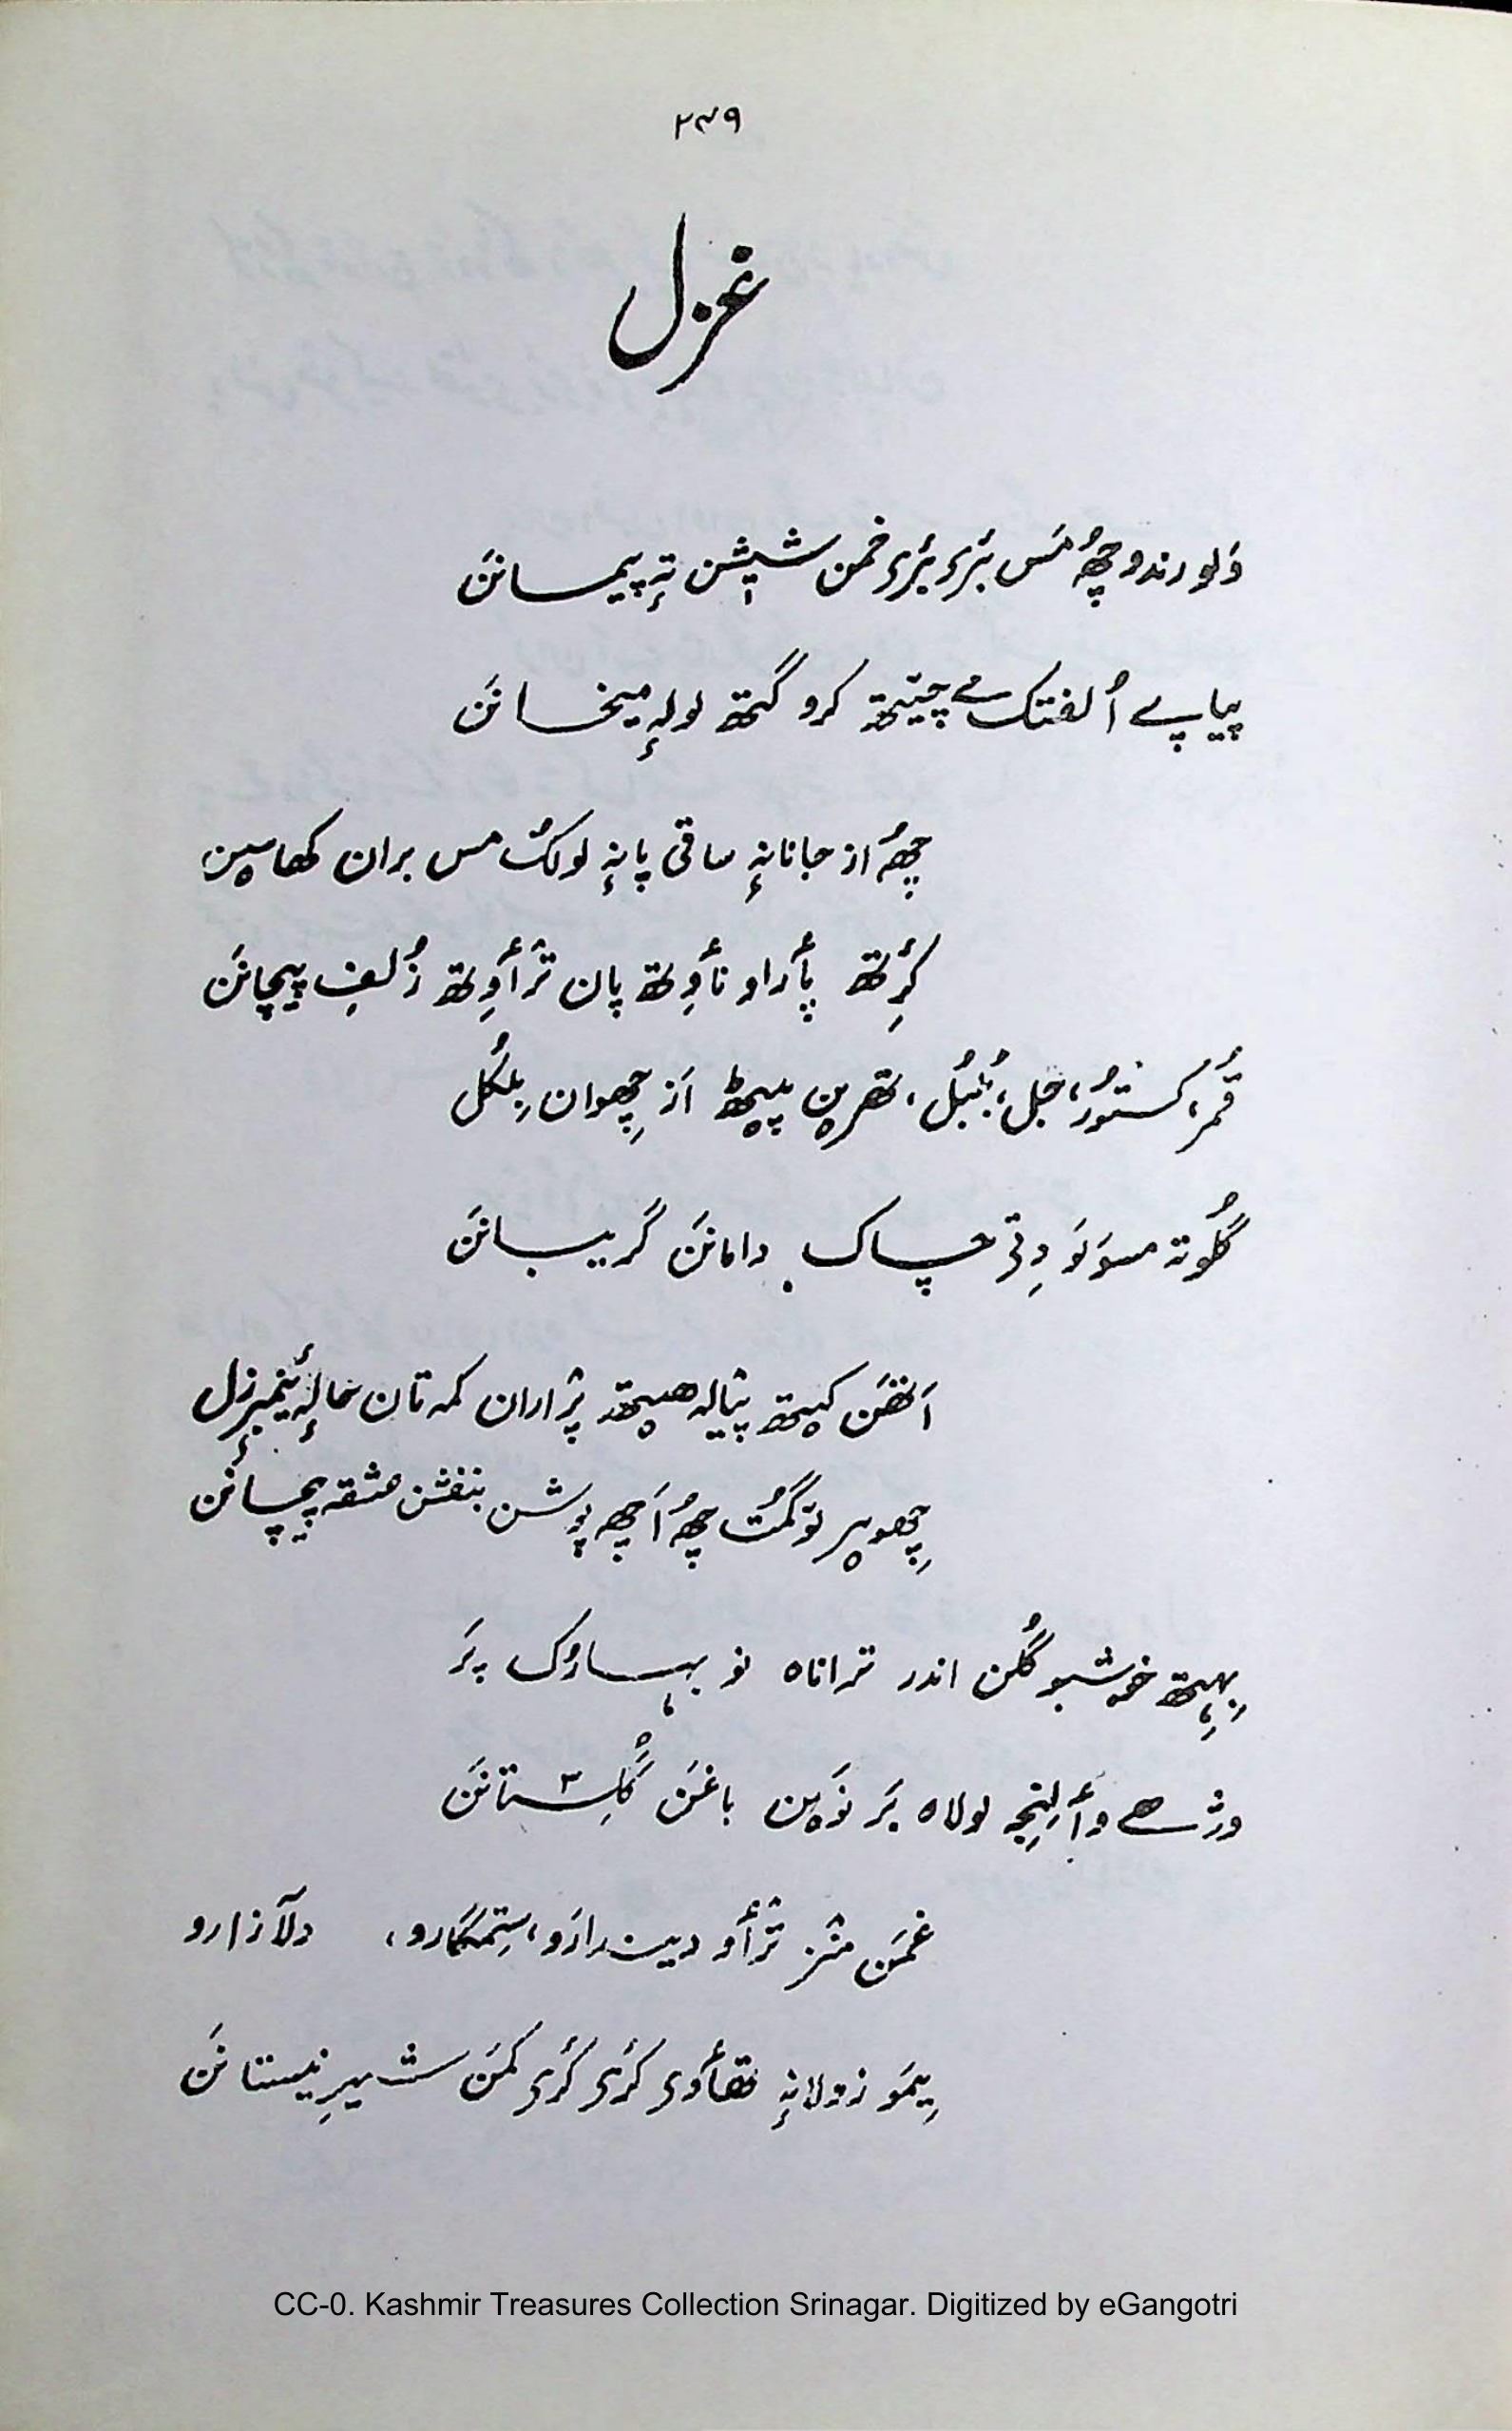 ۲۳۹
غزل
وَلو رندو چھُ مَس بَرۍ بَرۍ خمن شیشن تہٕ پیمانَن
پیاپے اُلفتک مے چیتھ کرو گتھ لولہٕ میخانَن
چھُ از جانانہٕ ساقی پانہٕ لولکُ مس بران کھاسین
کٔرِتھ پٲراو ناوِتھ پان ترٲوِتھ زُلفِ پیچانَن
قُمر، کستوٗر، جل، بُلبُل، تھرین پیٹھ اَز چھِوان بِلکُل
گُلو تہٕ مسوَلَو دِتی چاک دامانَن گریبانَن
اَتھَن کیتھ پیالہ ھیتھ پرٛاران کمہ تان حالہٕ ینمبرزل
چھِو پیر توگمُت چھُ اَچھ پوشن بنفشن عشقہ پیچانَن
بِہِتھ خوشبو گُلن اندر تراناہ نو بہارُک پَر
ورٛھے وٲلِنجہ لولاہ بَر نَوین باغَن گُلِستانَن
غمَن منٛز ترٛٲو دیندارَو، سِتمگارو، دلآزارو
یِمَو زولانہٕ تھٲوۍ کٔرۍ کٔرۍ کمَن شیرِ نیستانَن
CC-0. Kashmir Treasures Collection Srinagar. Digitized by eGangotri